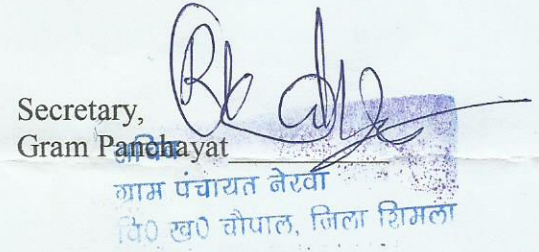 Secretary,
Gram Panchayat
सचिव
ग्राम पंचायत नेरवा
वि0 ख0 चौपाल, जिला शिमला